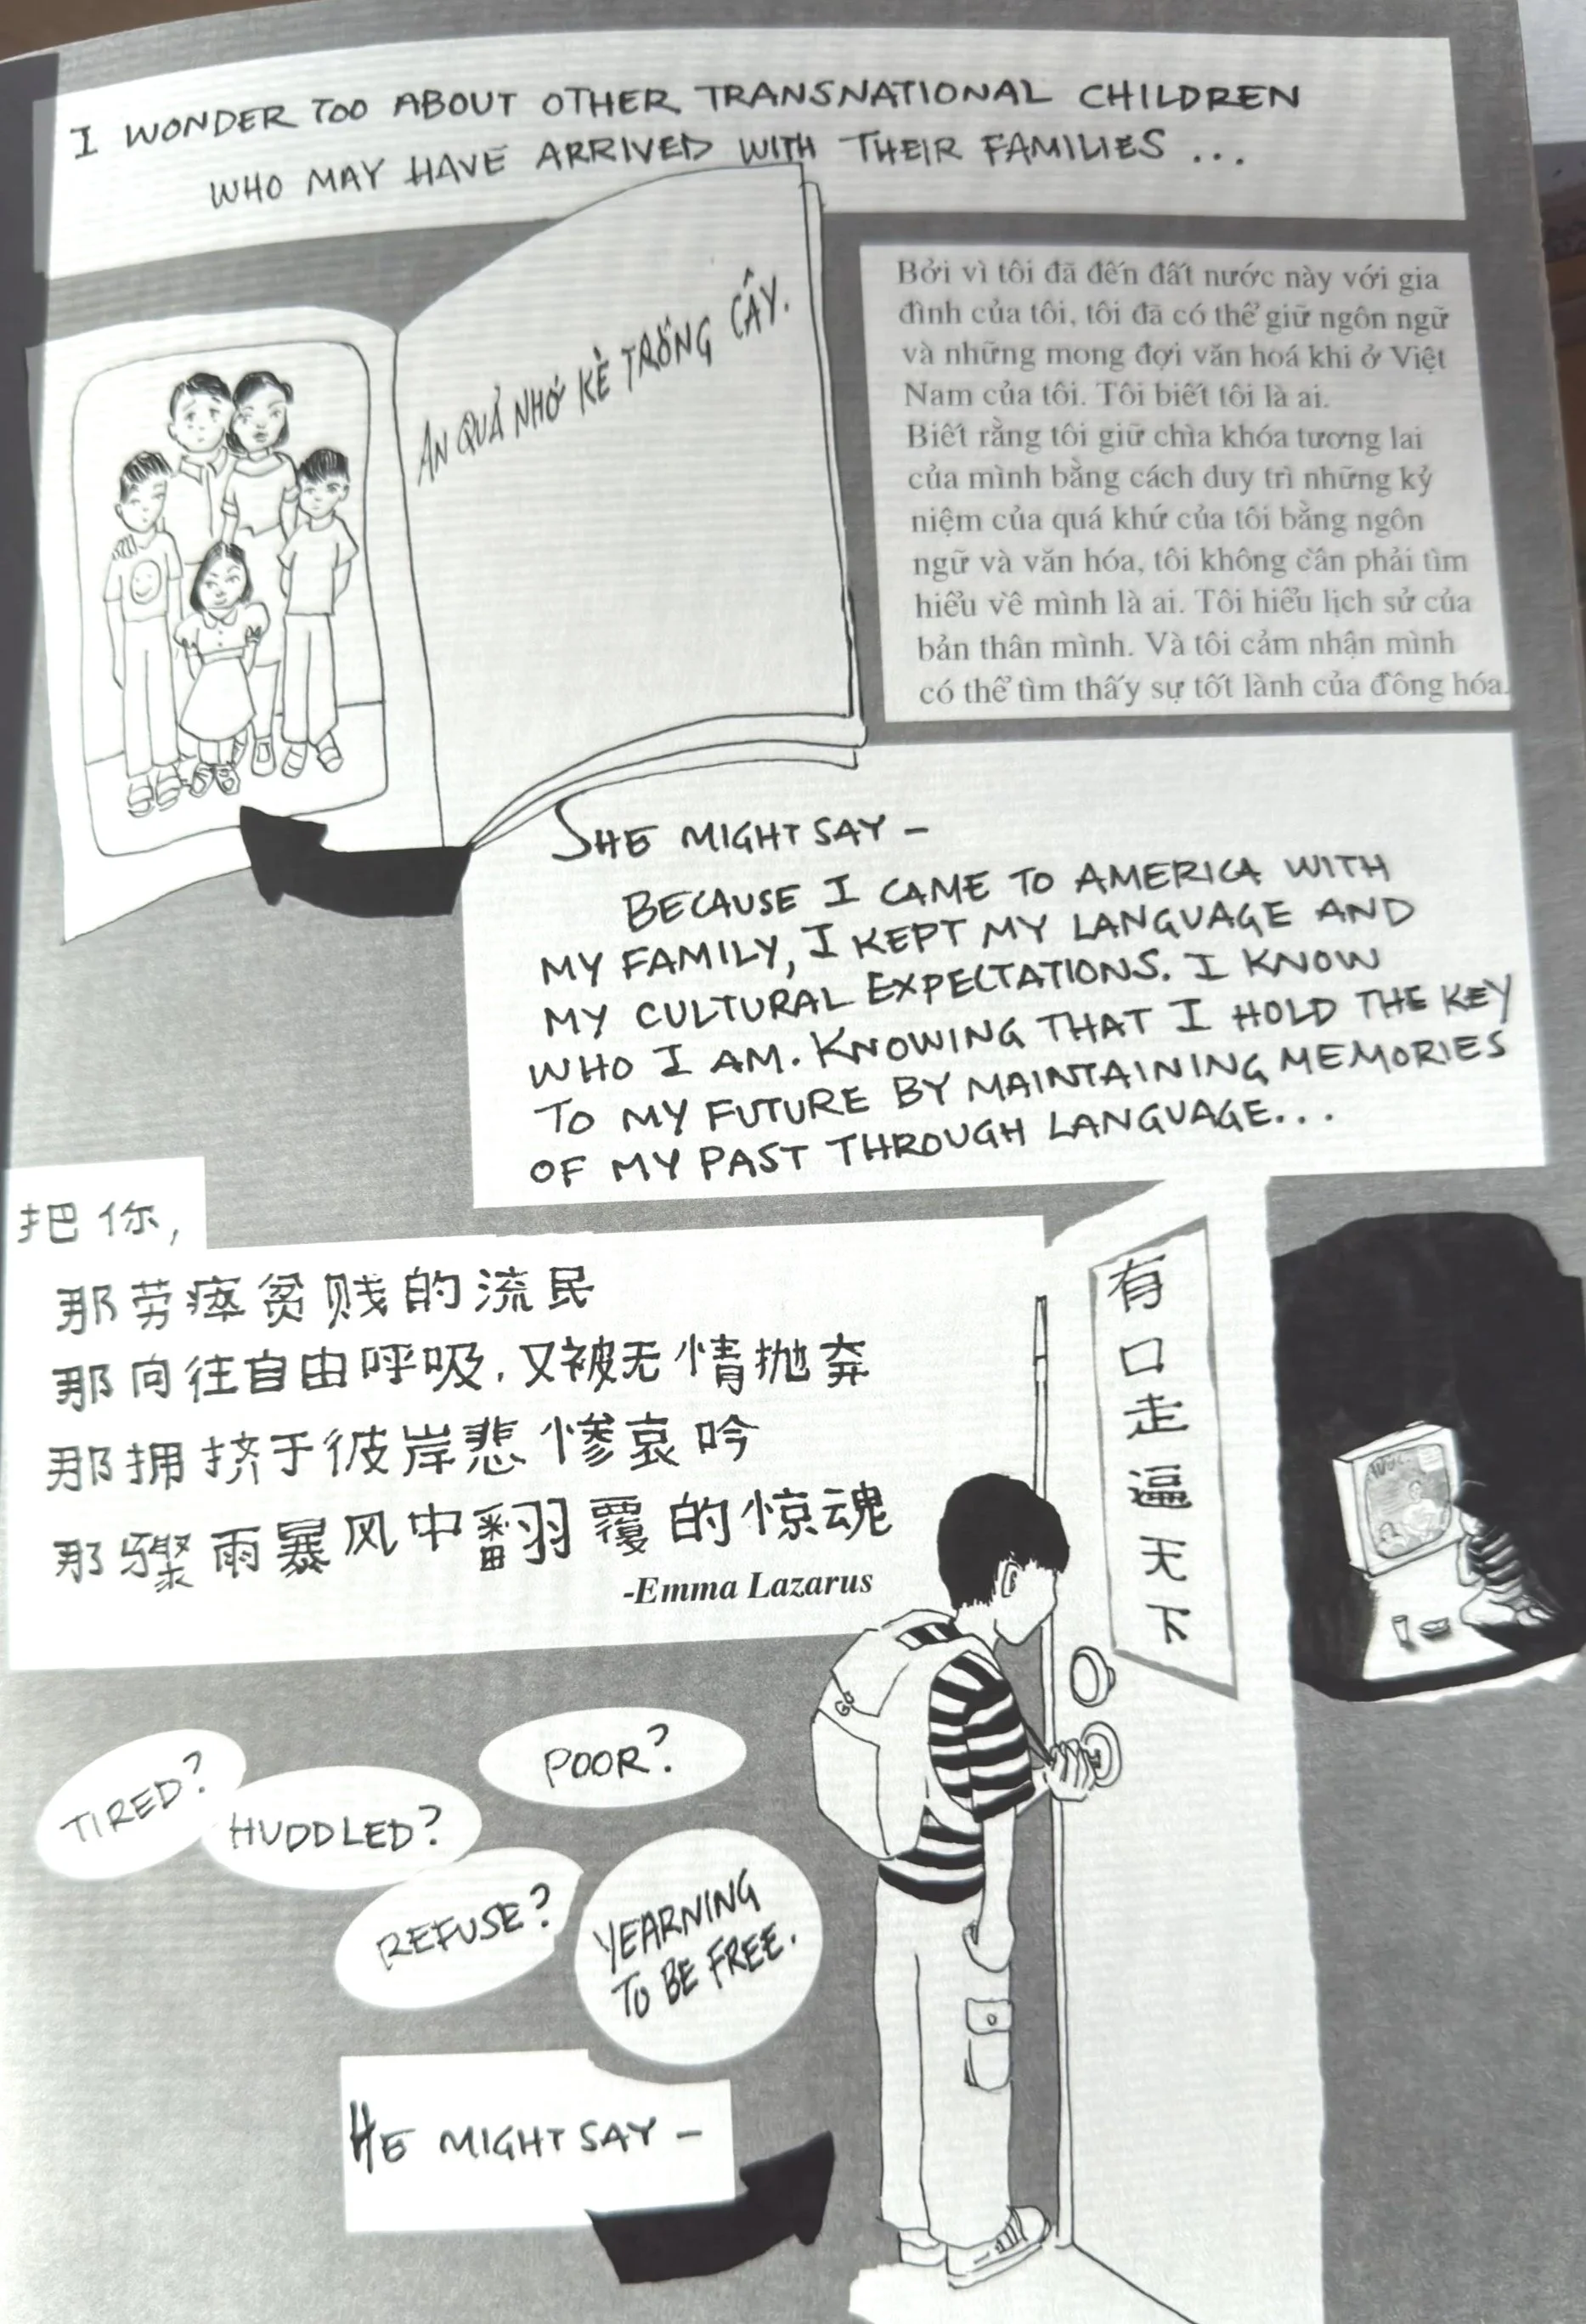 I WONDER TOO ABOUT OTHER TRANSNATIONAL CHILDREN
WHO MAY HAVE ARRIVED WITH THEIR FAMILIES ...
ĂN QUẢ NHỚ KẺ TRỒNG CÂY.
Bởi vì tôi đã đến đất nước này với gia
đình của tôi, tôi đã có thể giữ ngôn ngữ
và những mong đợi văn hoá khi ở Việt
Nam của tôi. Tôi biết tôi là ai.
Biết rằng tôi giữ chìa khóa tương lai
của mình bằng cách duy trì những kỷ
niệm của quá khứ của tôi bằng ngôn
ngữ và văn hóa, tôi không cần phải tìm
hiểu về mình là ai. Tôi hiểu lịch sử của
bản thân mình. Và tôi cảm nhận mình
có thể tìm thấy sự tốt lành của đồng hóa.
SHE MIGHT SAY –
BECAUSE I CAME TO AMERICA WITH
MY FAMILY, I KEPT MY LANGUAGE AND
MY CULTURAL EXPECTATIONS. I KNOW
WHO I AM. KNOWING THAT I HOLD THE KEY
TO MY FUTURE BY MAINTAINING MEMORIES
OF MY PAST THROUGH LANGUAGE...
把你,
那劳瘁贫贱的流民
那向往自由呼吸,又被无情抛弃
那拥挤于彼岸悲惨哀吟
那骤雨暴风中翻覆的惊魂
-Emma Lazarus
有口走逼天下
TIRED?
HUDDLED?
POOR?
REFUSE?
YEARNING
TO BE FREE.
HE MIGHT SAY –